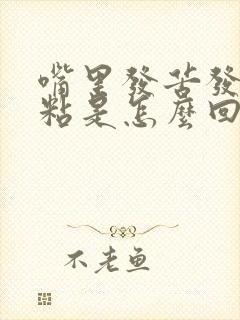 嘴里發苦發
粘是怎麼回
不老鱼